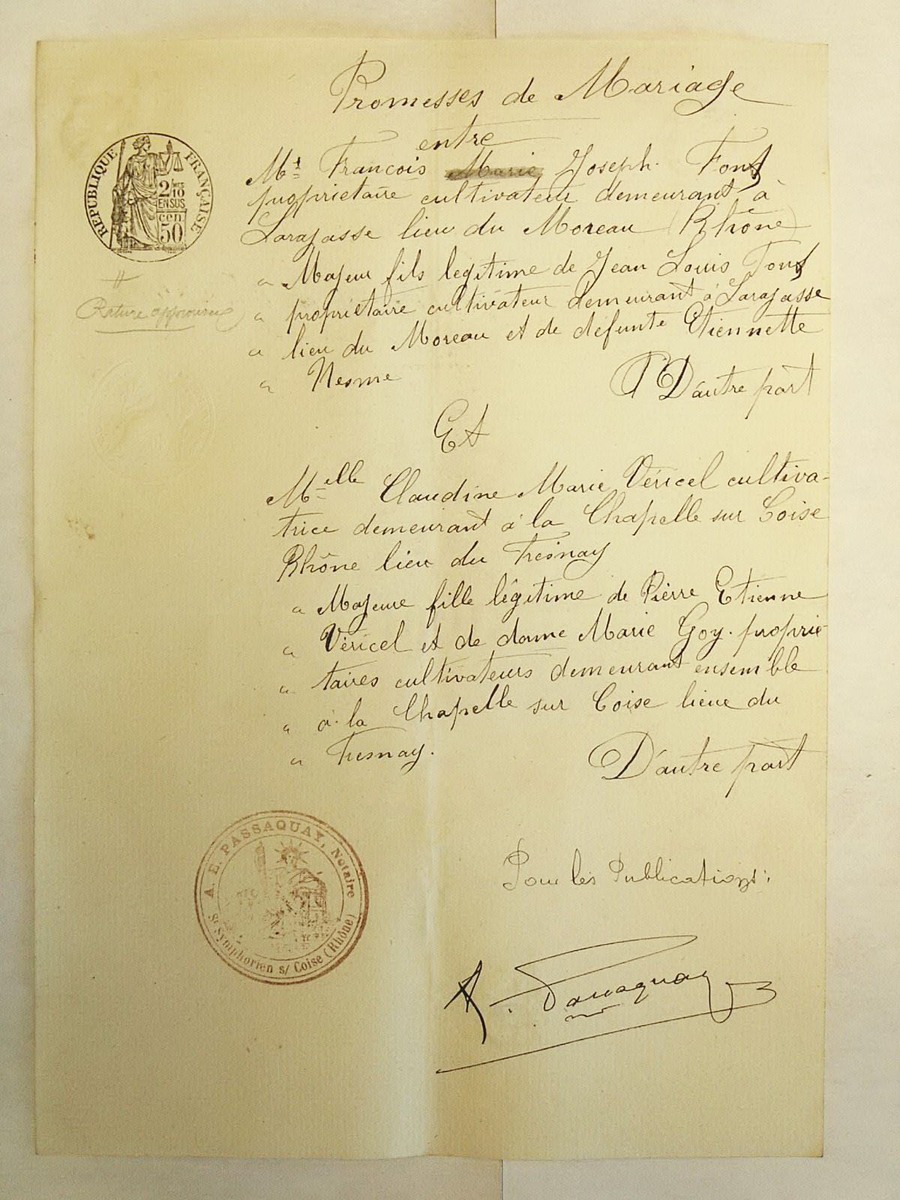 Promesses de Mariage
entre
Mr François Marie Joseph Font
propriétaire cultivateur demeurant à
Larajasse lieu du Moreau (Rhône)
" Majeur fils légitime de Jean Louis Font
" propriétaire cultivateur demeurant à Larajasse
" lieu du Moreau et de défunte Etiennette
" Nesme
D'autre part
Et
Melle Claudine Marie Véricel cultiva-
trice demeurant à la Chapelle sur Coise
Rhône lieu du Fresnay
" Majeure fille légitime de Pierre Etienne
" Véricel et de dame Marie Goy proprié-
" taires cultivateurs demeurant ensemble
" à la Chapelle sur Coise lieue du
" Fresnay.
D'autre part
Pour les Publications:
A. Passaquay
RÉPUBLIQUE FRANÇAISE
2/10
EN SUS
cen
50
Rature approuvée
A. E. PASSAQUAY, Notaire
St Symphorien s/ Coise (Rhône)